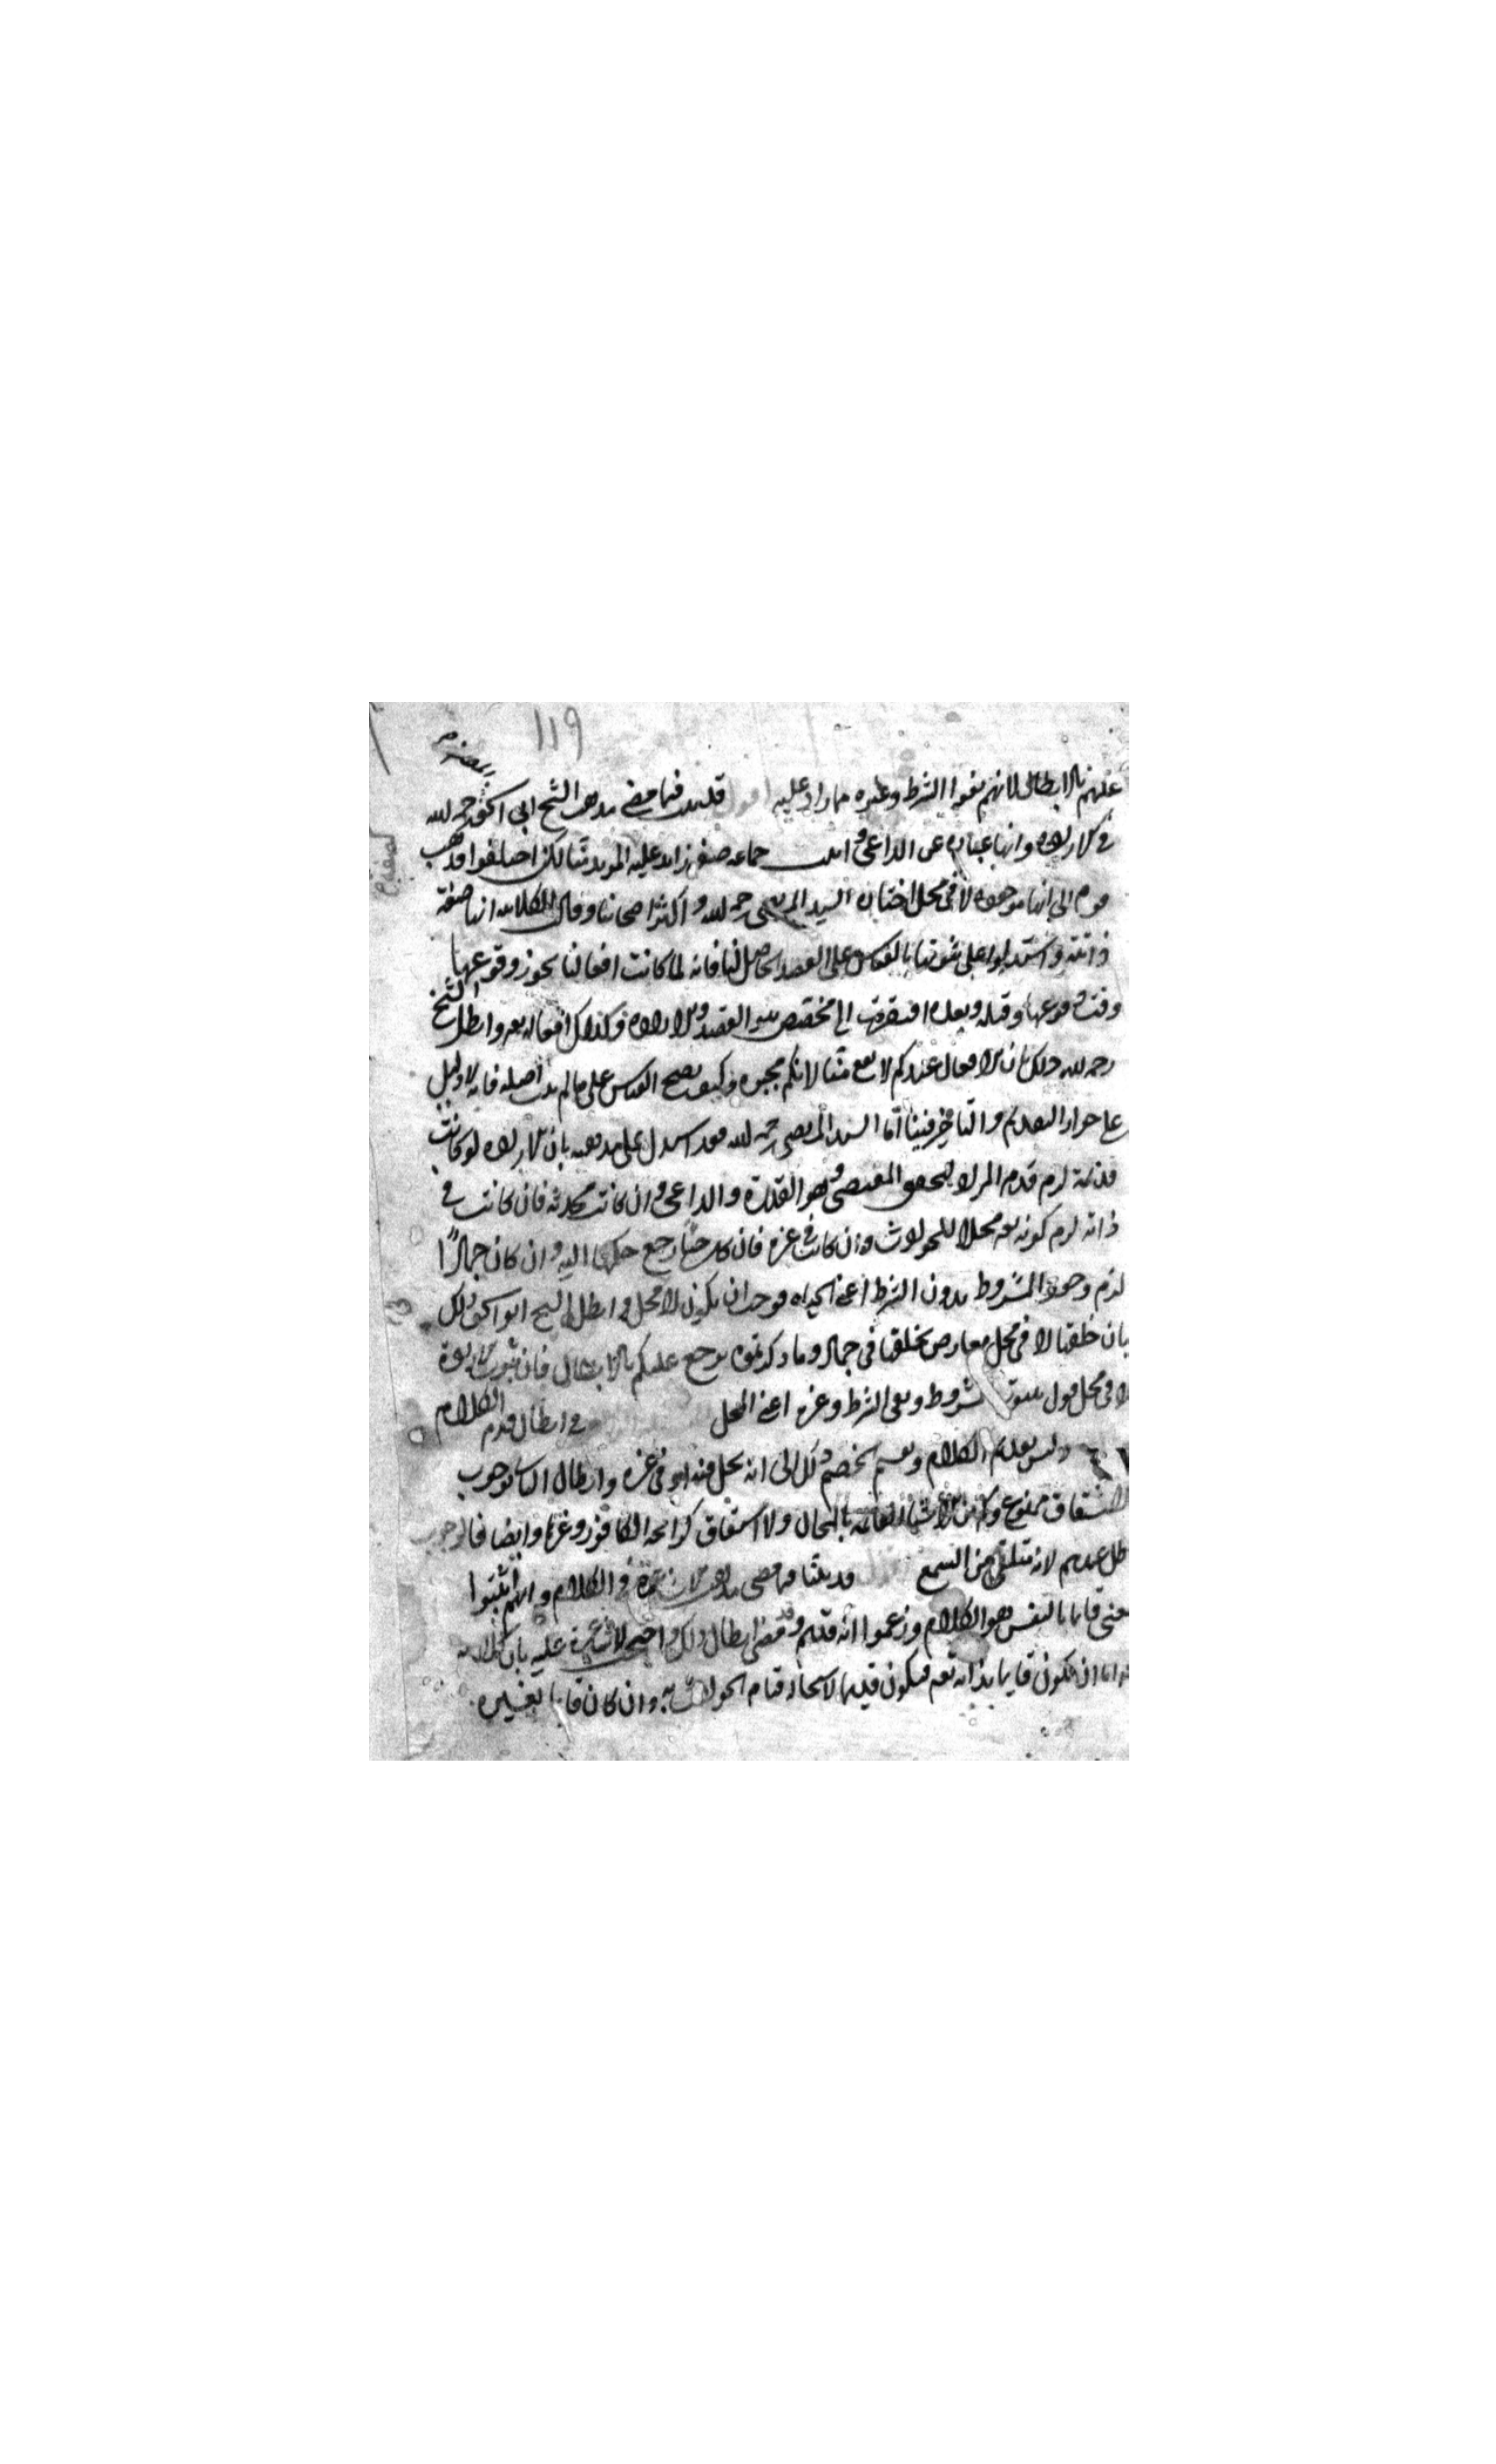 119
عليهم بالابطال لانهم نفوا الشرط وغيره مما زاد عليه اقول قد بينا فيما مضى مذهب الشيخ ابي اسحق رحمه الله
في الارادة وانها عبارة عن الداعي واثبت جماعة صفة زائدة عليه المريد منا لكن اختلفوا فذهب
قوم الى انها موجودة لا في محل اختاره السيد المرتضى رحمه الله واكثر اصحابنا وقال الكلابية انها صفة
ذاتية واستدلوا على ثبوتها بالقياس على القصد الحاصل لنا فانه لما كانت افعالنا يجوز وقوعها
وقت وقوعها وقبله وبعده افتقرت الى مخصص هو القصد والارادة وكذلك افعاله تعه وابطل الشيخ
رحمه الله ذلك بان الافعال عندكم لا تقع منا لانكم مجبرة وكيف يصح القياس على ما لم يثبت اصله فانه لا دليل
على جواز التقديم والتاخير فينا اما السيد المرتضى رحمه الله فقد استدل على مذهبه بان الارادة لو كانت
قديمة لزم قدم المراد لتحقق المقتضي وهو القدرة والداعي وان كانت محدثة فان كانت في
ذاته لزم كونه تعه محلا للحوادث وان كانت في غيره فان كان حيا رجع حكمها اليه وان كان جمادا
لزم وجود المشروط بدون الشرط اعني الحياة فوجب ان يكون لا في محل وابطل الشيخ ابو اسحق ذلك
بان خلقها لا في محل معارض بخلقها في جماد وما ذكرتموه يرجع عليكم بالابطال فان ثبوت الارادة
لا في محل قول بثبوت المشروط ونفي الشرط وغيره اعني المحل في ابطال قدم الكلام
وليس بقديم الكلام وتقسيم الخصم ذلك الى انه يحل فيه او في غيره وابطال الثاني بوجوب
الاشتقاق ممنوع وكم من الاشياء القائمة بالمحال ولا اشتقاق كرائحة الكافور وغيرها وايضا فالوجوب
باطل عندهم لانه متلقى من السمع اقول قد بينا فيما مضى مذهب الاشاعرة في الكلام وانهم اثبتوا
معنى قائما بالنفس هو الكلام وزعموا انه قديم وقد مضى ابطال ذلك واحتج الاشاعرة عليه بان كلامه
اما ان يكون قائما بذاته تعه فيكون قديما لاستحالة قيام الحوادث به وان كان قائما بغيره